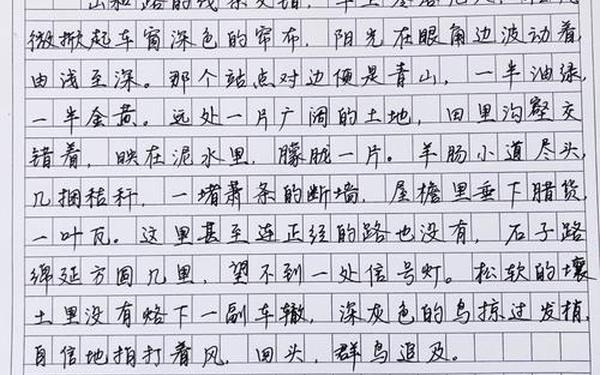 山和路的线条交错，车上座
微掀起车窗深色的帘布，阳光在眼角边波动着
由浅至深。那个站点对边便是青山，一半油绿，
一半金黄。远处一片广阔的土地，田里沟壑交
错着，映在泥水里，朦胧一片。羊肠小道尽头，
几捆秸秆，一堵萧条的断墙，屋檐里垂下腊货，
一叶瓦。这里甚至连正经的路也没有，石子路
绵延方圆几里，望不到一处信号灯。松软的壤
土里没有烙下一副车辙，深灰色的鸟掠过发梢，
自信地拍打着风，回头，群鸟追及。